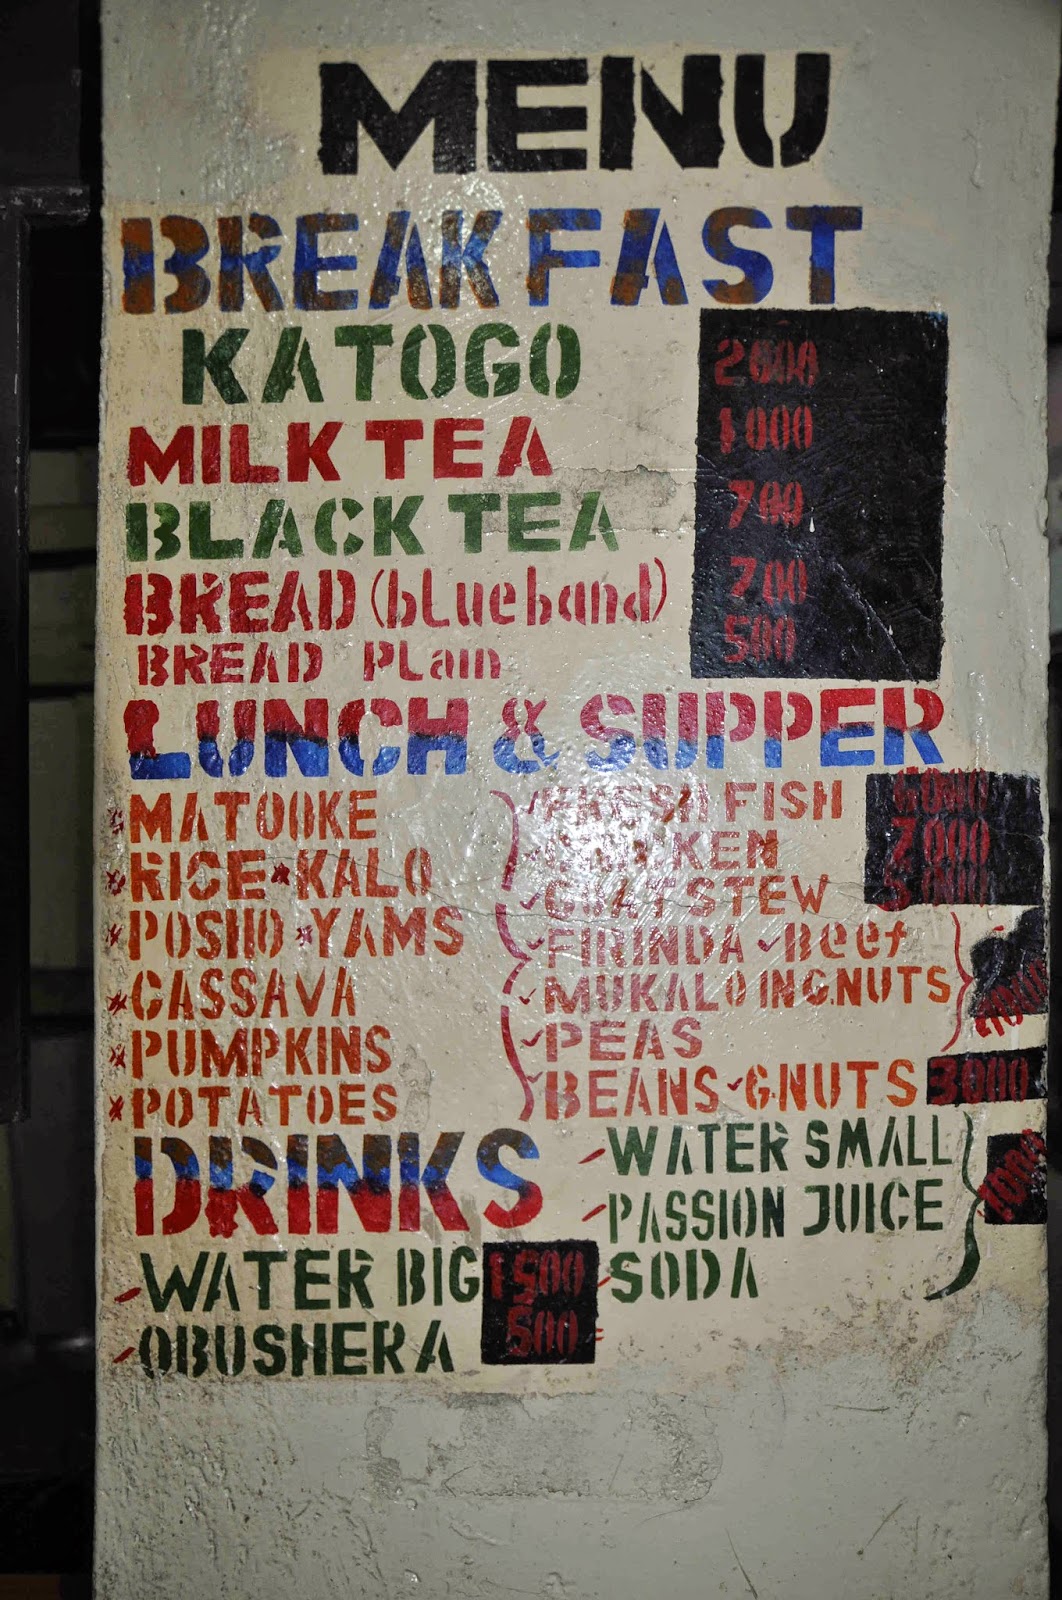 MENU
BREAKFAST
KATOGO 2000
MILK TEA 1000
BLACK TEA 700
BREAD (blueband) 700
BREAD PLain 500
LUNCH & SUPPER
MATOOKE
RICE KALO
POSHO YAMS
CASSAVA
PUMPKINS
POTATOES
FRESH FISH 6000
CHICKEN 7000
GOAT STEW 5000
FIRINDA Beef
MUKALO IN G.NUTS 4000
PEAS
BEANS G.NUTS 3000
DRINKS
WATER BIG 1500
OBUSHERA 500
WATER SMALL
PASSION JUICE 1000
SODA